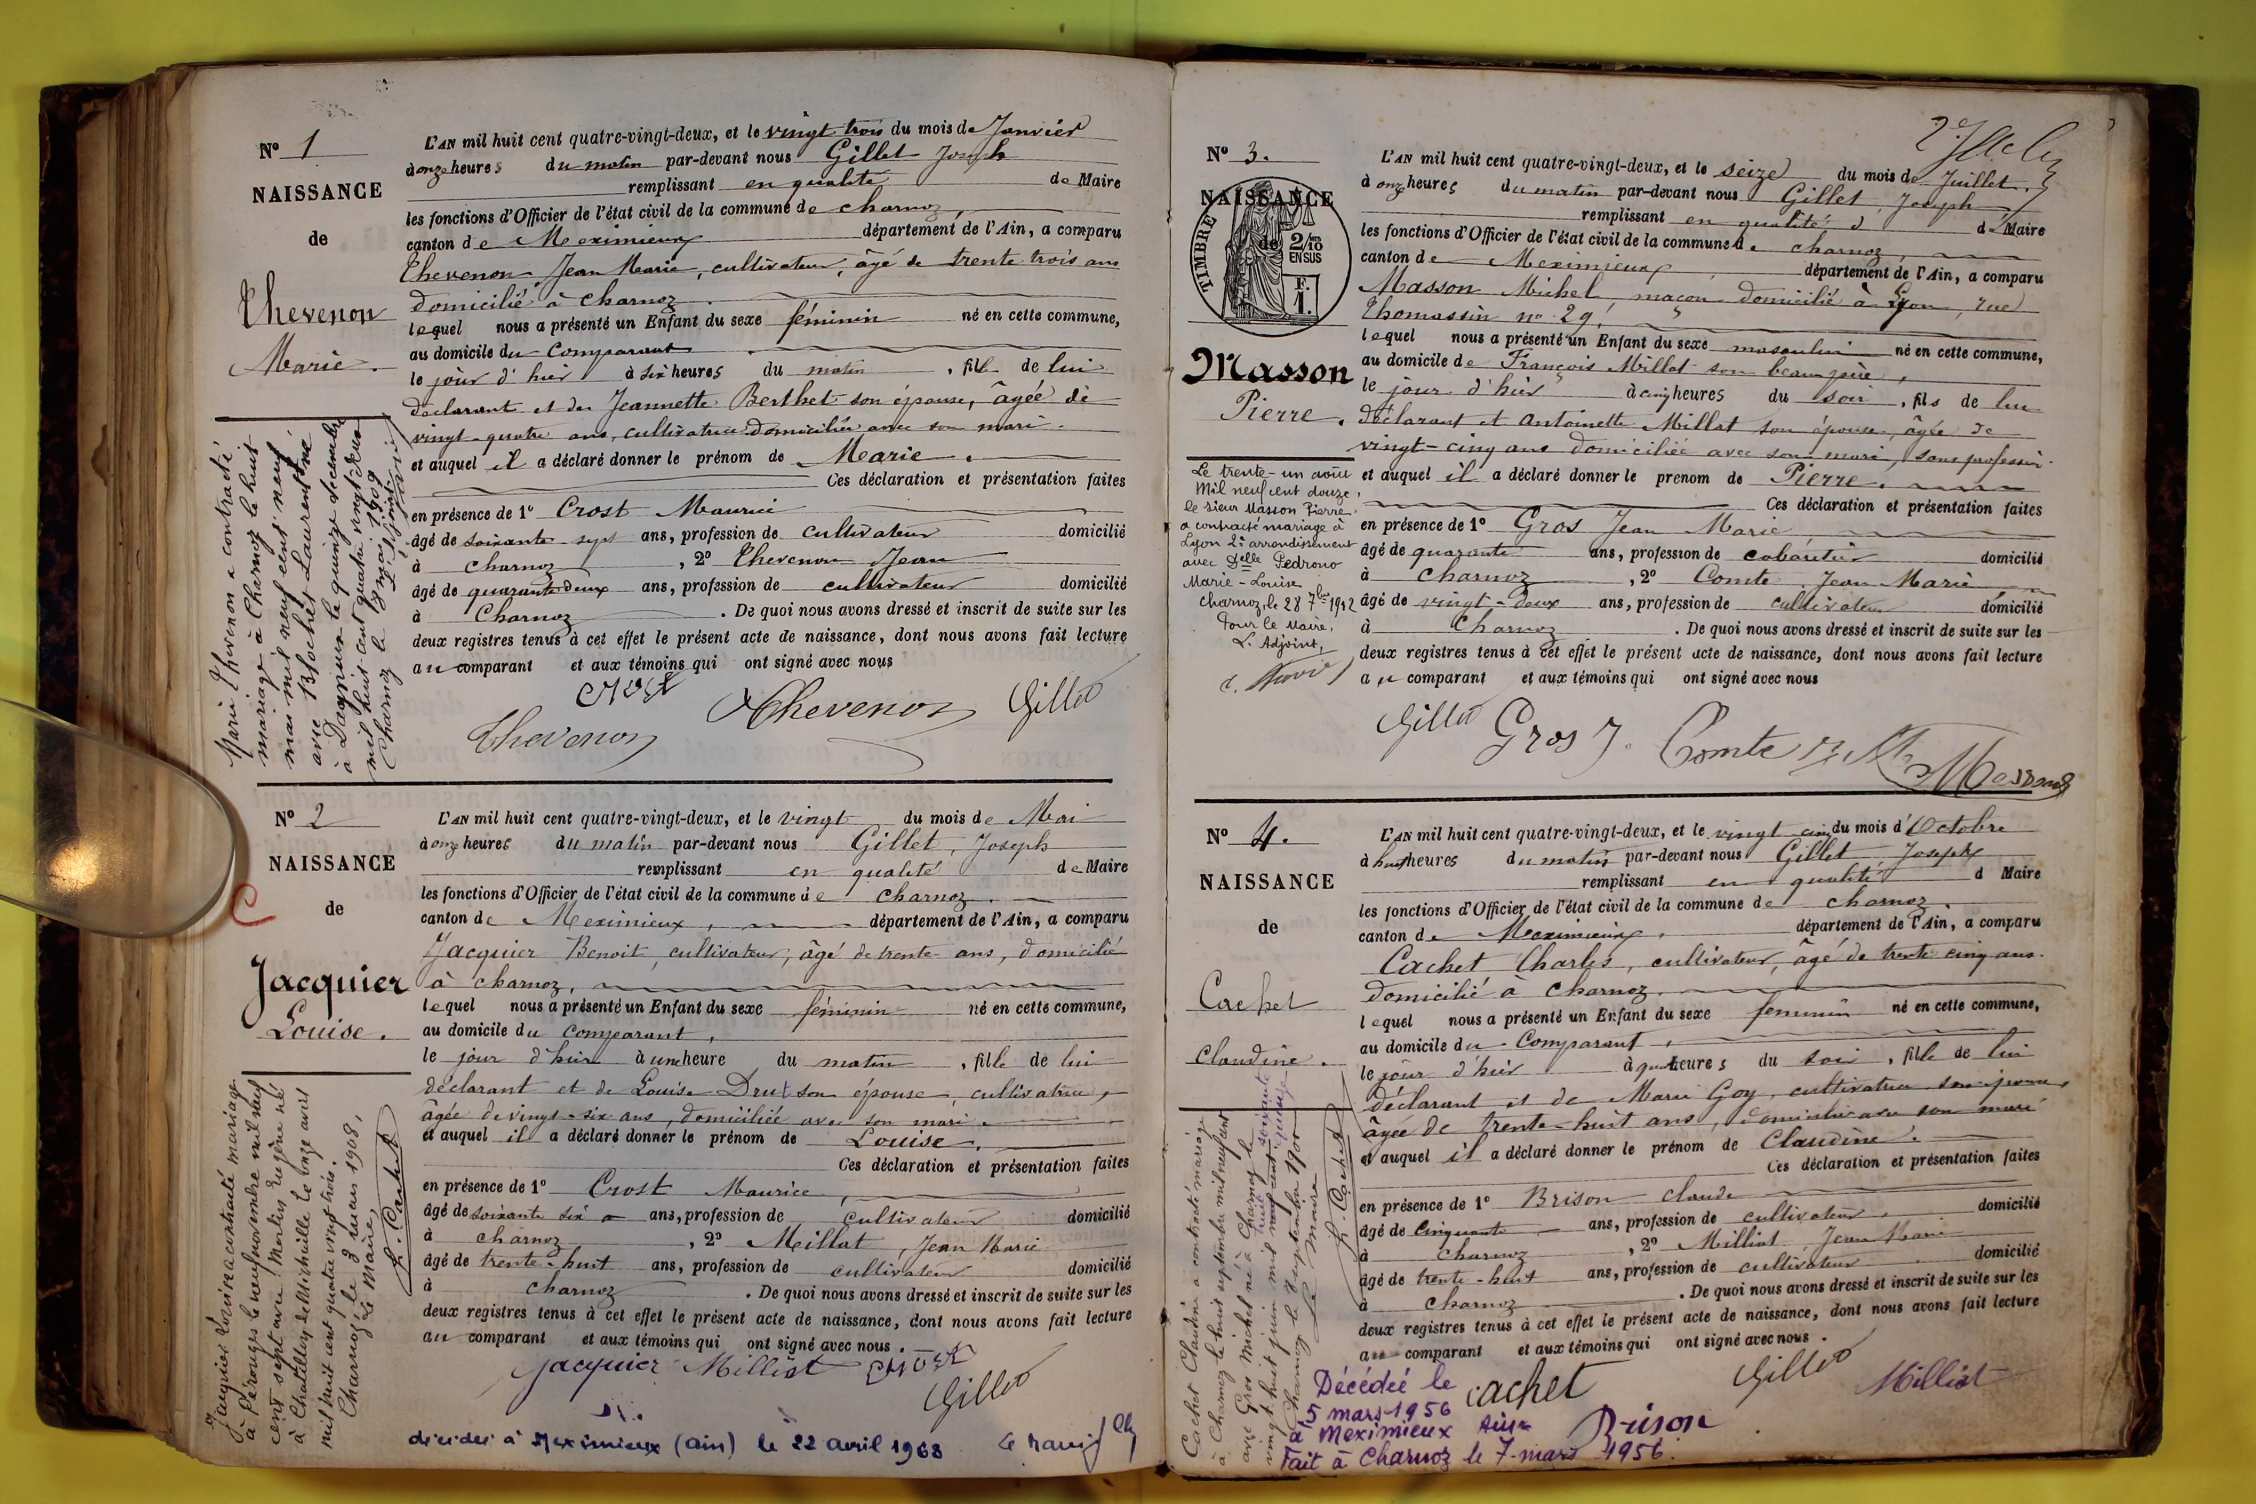 N° 1
NAISSANCE
de
Thevenon
Marie.
L'AN mil huit cent quatre-vingt-deux, et le vingt trois du mois de Janvier
à onze heures du matin par-devant nous Gillet Joseph
remplissant en qualité de Maire
les fonctions d'Officier de l'état civil de la commune de charnoz,
canton de Meximieux département de l'Ain, a comparu
Thevenon Jean Marie, cultivateur, âgé de trente trois ans
domicilié à charnoz
lequel nous a présenté un Enfant du sexe féminin né en cette commune,
au domicile du Comparant
le jour d'hier à six heures du matin, fille de lui
déclarant et de Jeannette Berthet son épouse, âgée de
vingt-quatre ans, cultivatrice domiciliée avec son mari.
et auquel il a déclaré donner le prénom de Marie.
Ces déclaration et présentation faites
en présence de 1° Crost Maurice
âgé de soixante-sept ans, profession de cultivateur domicilié
à charnoz, 2° Thevenon Jean
âgé de quarante deux ans, profession de cultivateur domicilié
à Charnoz. De quoi nous avons dressé et inscrit de suite sur les
deux registres tenus à cet effet le présent acte de naissance, dont nous avons fait lecture
au comparant et aux témoins qui ont signé avec nous
Crost
Thevenon Thevenon Gillet
Marie Thevenon a contracté
mariage à Charnoz le huit
mai mil neuf cent neuf
avec Blochet Laurent né
à Dagneux le quinze décembre
mil huit cent quatre vingt deux
Charnoz le 9 mai 1909
L'Adjoint
N° 2
NAISSANCE
de
Jacquier
Louise.
L'AN mil huit cent quatre-vingt-deux, et le vingt du mois de Mai
à onze heures du matin par-devant nous Gillet, Joseph
remplissant en qualité de Maire
les fonctions d'Officier de l'état civil de la commune de charnoz.
canton de Meximieux, département de l'Ain, a comparu
Jacquier Benoit, cultivateur, âgé de trente ans, domicilié
à charnoz,
lequel nous a présenté un Enfant du sexe féminin né en cette commune,
au domicile du comparant,
le jour d'hier à une heure du matin, fille de lui
déclarant et de Louise Drut son épouse, cultivatrice,
âgée de vingt-six ans, domiciliée avec son mari.
et auquel il a déclaré donner le prénom de Louise.
Ces déclaration et présentation faites
en présence de 1° Crost Maurice,
âgé de soixante six ans, profession de cultivateur domicilié
à charnoz, 2° Millat, Jean Marie
âgé de trente-huit ans, profession de cultivateur domicilié
à charnoz. De quoi nous avons dressé et inscrit de suite sur les
deux registres tenus à cet effet le présent acte de naissance, dont nous avons fait lecture
au comparant et aux témoins qui ont signé avec nous.
Jacquier Milliat Crost
Gillet
Jacquier Louise a contracté mariage
à Pérouges le neuf novembre mil neuf
cent sept avec Merlin Eugène né
à Chatillon le onze avril
mil huit cent quatre vingt trois.
Charnoz, le 3 mars 1908,
Le Maire,
L. Cachet
décédée à Meximieux (ain) le 22 avril 1968
N° 3.
NAISSANCE
de
TIMBRE
2/10
EN SUS
F.
1.
Masson
Pierre.
L'AN mil huit cent quatre-vingt-deux, et le seize du mois de Juillet,
à onze heures du matin par-devant nous Gillet, Joseph
remplissant en qualité d de Maire
les fonctions d'Officier de l'état civil de la commune de charnoz,
canton de Meximieux, département de l'Ain, a comparu
Masson Michel, maçon domicilié à Lyon, rue
Thomassin n° 29,
lequel nous a présenté un Enfant du sexe masculin né en cette commune,
au domicile de François Millat son beau père,
le jour d'hier à cinq heures du soir, fils de lui
déclarant et Antoinette Millat son épouse, âgée de
vingt-cinq ans domiciliée avec son mari, sans profession.
et auquel il a déclaré donner le prenom de Pierre.
Ces déclaration et présentation faites
en présence de 1° Gros Jean Marie
âgé de quarante ans, profession de cabaretier domicilié
à charnoz, 2° Comte Jean Marie,
âgé de vingt-deux ans, profession de cultivateur domicilié
à Charnoz. De quoi nous avons dressé et inscrit de suite sur les
deux registres tenus à cet effet le présent acte de naissance, dont nous avons fait lecture
au comparant et aux témoins qui ont signé avec nous
Gillet Gros J. Comte Masson
Le trente-un août
Mil neuf cent douze,
le sieur Masson Pierre
a contracté mariage à
Lyon 2e arrondissement
avec Delle Pedrono
Marie-Louise
Charnoz, le 28 7bre 1912
Pour le Maire,
L'Adjoint,
N° 4.
NAISSANCE
de
Cachet
Claudine.
L'AN mil huit cent quatre-vingt-deux, et le vingt cinq du mois d'Octobre
à huit heures du matin par-devant nous Gillet Joseph
remplissant en qualité d Maire
les fonctions d'Officier de l'état civil de la commune de charnoz.
canton de Meximieux, département de l'Ain, a comparu
Cachet Charles, cultivateur, âgé de trente cinq ans.
domicilié à charnoz.
lequel nous a présenté un Enfant du sexe feminin né en cette commune,
au domicile du Comparant,
le jour d'hier à quatre heures du soir, fille de lui
déclarant et de Marie Goy, cultivatrice son épouse,
âgée de trente-huit ans, domiciliée avec son mari
et auquel il a déclaré donner le prénom de Claudine.
Ces déclaration et présentation faites
en présence de 1° Brison Claude
âgé de Cinquante ans, profession de cultivateur, domicilié
à charnoz, 2° Milliat Jean Marie
âgé de trente-huit ans, profession de cultivateur domicilié
à Charnoz. De quoi nous avons dressé et inscrit de suite sur les
deux registres tenus à cet effet le présent acte de naissance, dont nous avons fait lecture
au comparant et aux témoins qui ont signé avec nous.
cachet Gillet Milliat
Brison
Cachet Claudine a contracté mariage
à Charnoz le huit septembre mil neuf cent
avec Gros Michel né à Charnoz le
vingt huit juin mil huit cent soixante quinze
Charnoz le 9 septembre 1900
Le Maire
L. Cachet
Décédée le
5 mars 1956
à Meximieux Ain
Fait à Charnoz le 7 mars 1956.